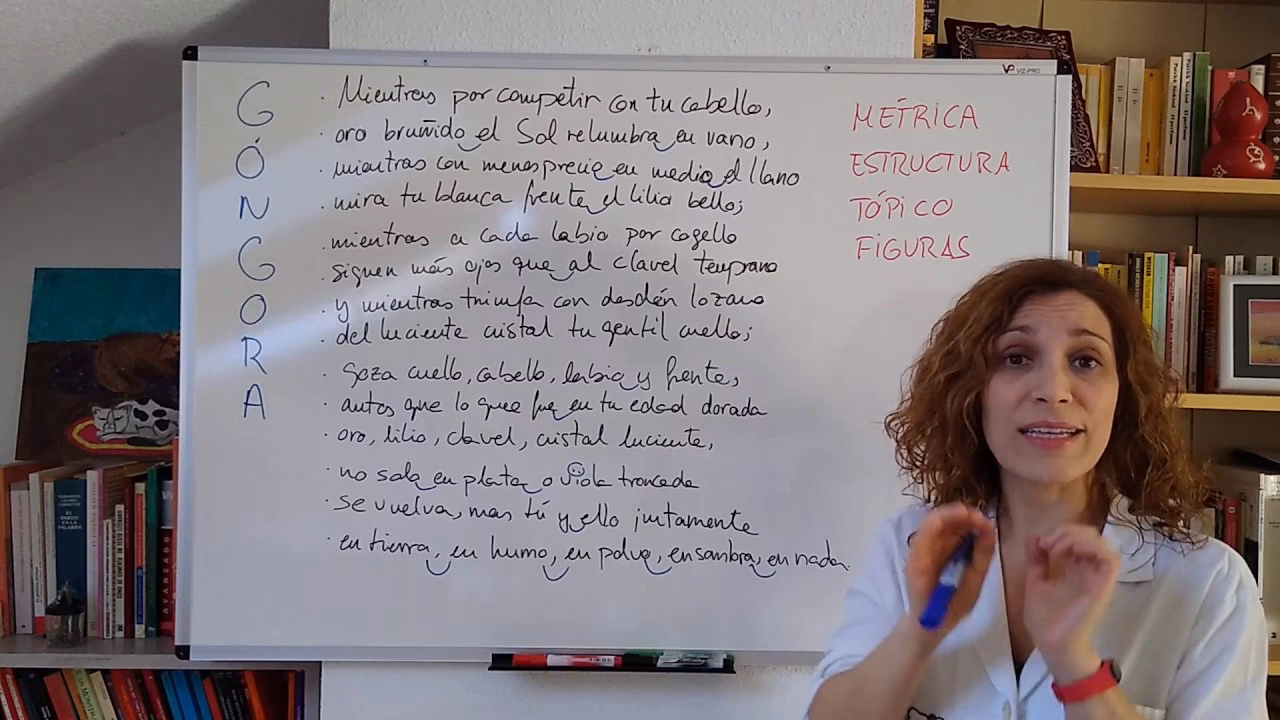 GÓNGORA
Mientras por competir con tu cabello,
oro bruñido el Sol relumbra en vano,
mientras con menosprecio en medio el llano
mira tu blanca frente el lilio bello;
mientras a cada labio por cogello
siguen más ojos que al clavel temprano
y mientras triunfa con desdén lozano
del luciente cristal tu gentil cuello;
goza cuello, cabello, labio y frente,
antes que lo que fue en tu edad dorada
oro, lilio, clavel, cristal luciente,
no solo en plata o viola troncada
se vuelva, mas tú y ello juntamente
en tierra, en humo, en polvo, en sombra, en nada.
MÉTRICA
ESTRUCTURA
TÓPICO
FIGURAS
VIZ-PRO